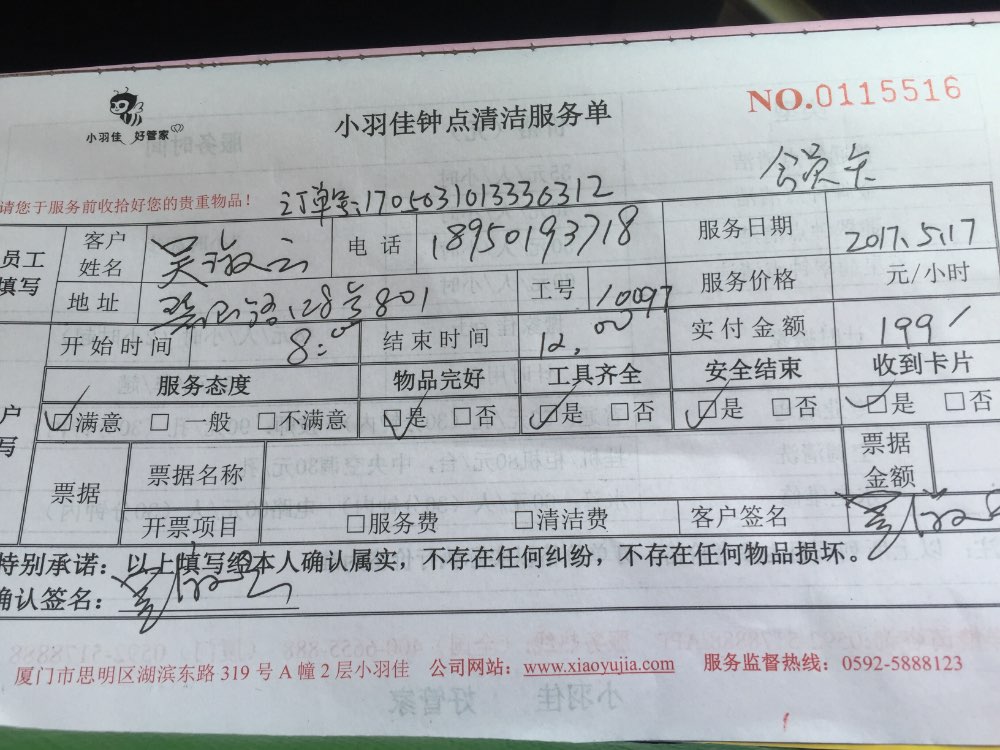 小羽佳 好管家
小羽佳钟点清洁服务单
NO.0115516
会员卡
请您于服务前收拾好您的贵重物品！
订单号:1705031013336312
员工填写 客户姓名 电话 18950193718 服务日期 2017.5.17
地址 28号801 工号 10097 服务价格 元/小时
开始时间 8:00 结束时间 12.00 实付金额 199
服务态度 物品完好 工具齐全 安全结束 收到卡片
户写 ☑满意 □一般 □不满意 ☑是 □否 ☑是 □否 ☑是 □否 ☑是 □否
票据 票据名称 票据金额
开票项目 □服务费 □清洁费 客户签名
特别承诺：以上填写经本人确认属实，不存在任何纠纷，不存在任何物品损坏。
确认签名：
厦门市思明区湖滨东路 319 号 A 幢 2 层小羽佳 公司网站：www.xiaoyujia.com 服务监督热线：0592-5888123